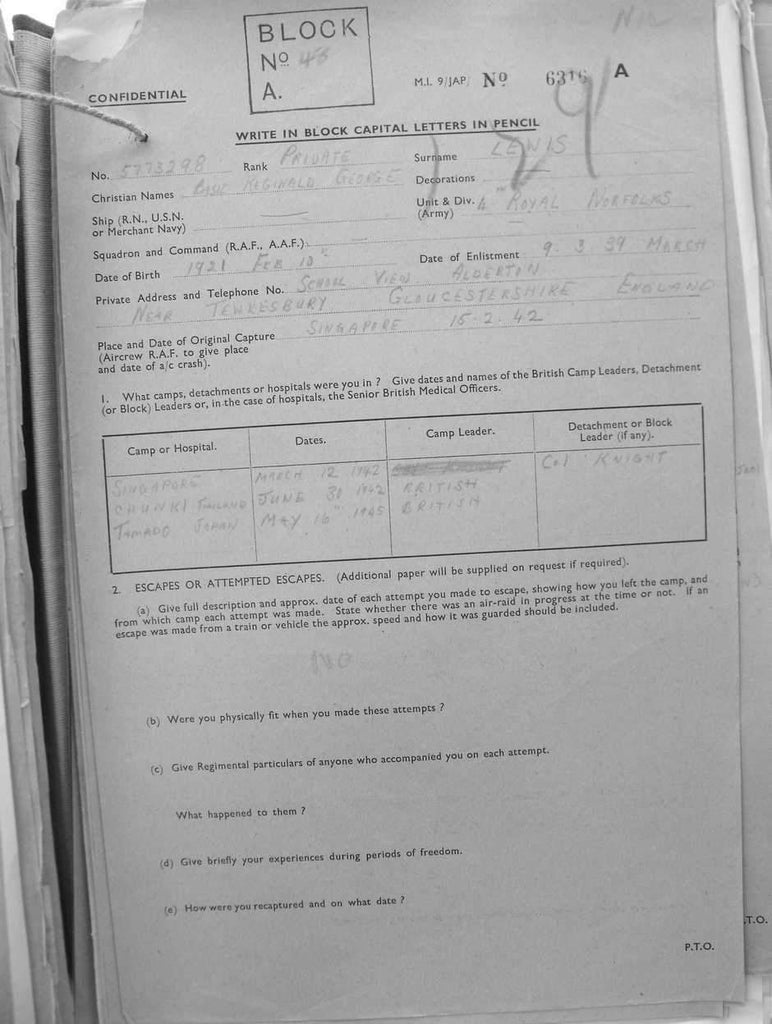 BLOCK
Nº 48
A.
CONFIDENTIAL
M.I. 9/JAP/ Nº 6316 A
WRITE IN BLOCK CAPITAL LETTERS IN PENCIL
No. 5773298 Rank PRIVATE Surname LEWIS
Christian Names REGINALD GEORGE Decorations
Ship (R.N., U.S.N. or Merchant Navy)
Unit & Div. (Army) 4 ROYAL NORFOLKS
Squadron and Command (R.A.F., A.A.F.)
Date of Birth 1921 FEB 10 Date of Enlistment 9. 3. 39 MARCH
Private Address and Telephone No. SCHOOL VIEW ALDERTON
NEAR TEWKESBURY GLOUCESTERSHIRE ENGLAND
Place and Date of Original Capture SINGAPORE 15-2-42
(Aircrew R.A.F. to give place
and date of a/c crash).
1. What camps, detachments or hospitals were you in ? Give dates and names of the British Camp Leaders, Detachment
(or Block) Leaders or, in the case of hospitals, the Senior British Medical Officers.
Camp or Hospital. Dates. Camp Leader. Detachment or Block Leader (if any).
SINGAPORE MARCH 12 1942 Col KNIGHT
CHUNKI THAILAND JUNE 1942 BRITISH
TAMADO JAPAN MAY 16 1945 BRITISH
2. ESCAPES OR ATTEMPTED ESCAPES. (Additional paper will be supplied on request if required).
(a) Give full description and approx. date of each attempt you made to escape, showing how you left the camp, and
from which camp each attempt was made. State whether there was an air-raid in progress at the time or not. If an
escape was made from a train or vehicle the approx. speed and how it was guarded should be included.
NO
(b) Were you physically fit when you made these attempts ?
(c) Give Regimental particulars of anyone who accompanied you on each attempt.
What happened to them ?
(d) Give briefly your experiences during periods of freedom.
(e) How were you recaptured and on what date ?
P.T.O.
T.O.